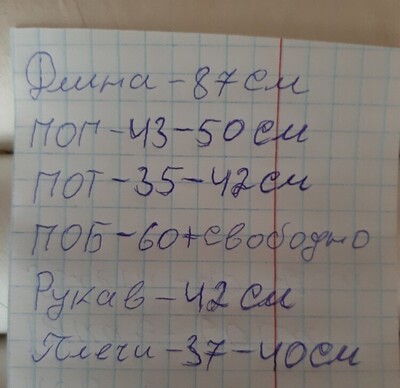 Длина - 87 см
ПОГ - 43 - 50 см
ПОТ - 35 - 42 см
ПОБ - 60 + свободно
Рукав - 42 см
Плечи - 37 - 40 см